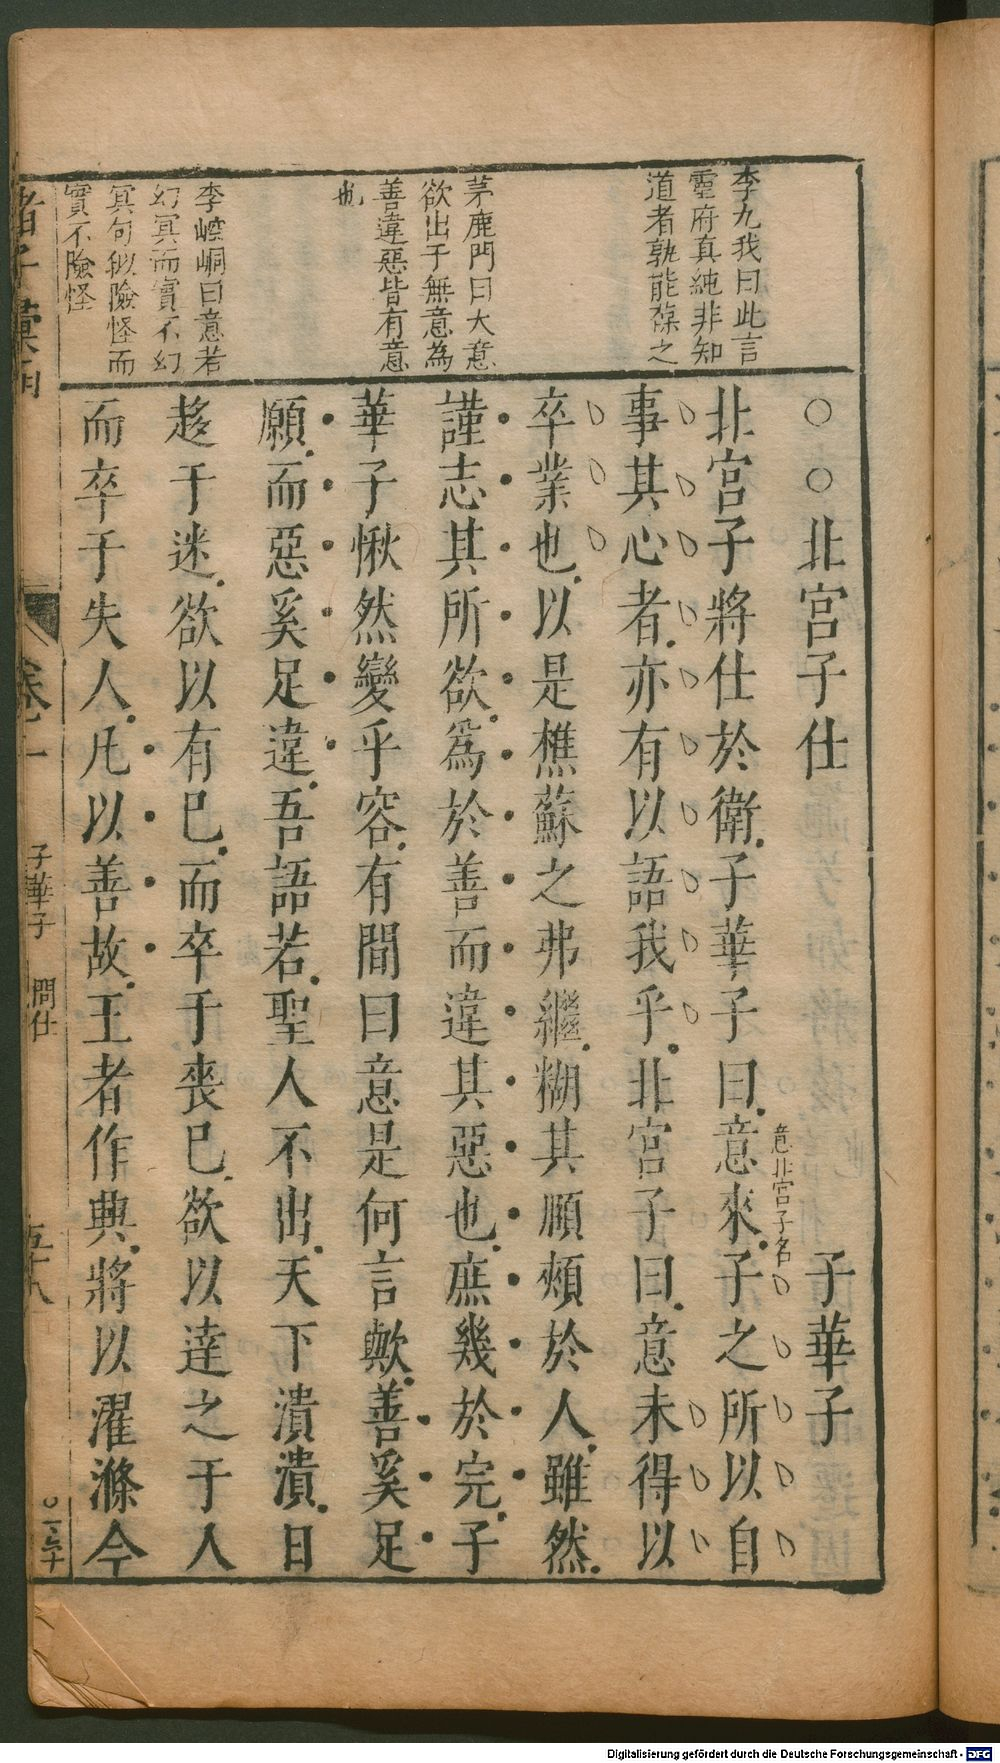 李九我曰此言
靈府真純非知
道者孰能葆之
茅鹿門曰大意
欲出于無意為
善違惡皆有意
也
李崆峒曰意若
幻冥而實不幻
冥句似險怪而
實不險怪
○○北宮子仕 子華子
北宮子將仕於衛子華子曰意來子之所以自
意北宮子名
事其心者亦有以語我乎北宮子曰意未得以
卒業也以是樵蘇之弗繼糊其顑頰於人雖然
謹志其所欲為於善而違其惡也庶幾於完子
華子愀然變乎容有間曰意是何言歟善奚足
願而惡奚足違吾語若聖人不出天下潰潰日
趍于迷欲以有已而卒于喪已欲以達之于人
而卒于失人凡以善故王者作興將以濯滌今
諸子彙函
卷一
子華子 問仕
五十八
Digitalisierung gefördert durch die Deutsche Forschungsgemeinschaft - DFG